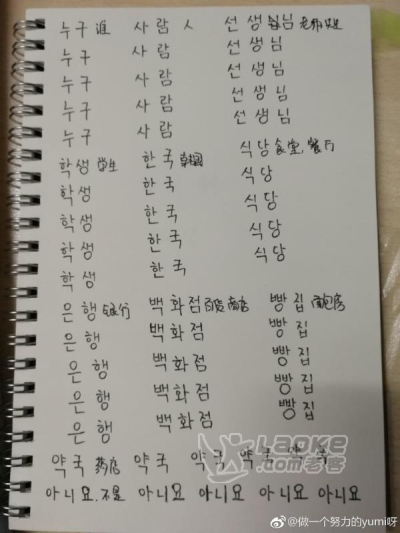 누구 谁 사람 人 선생님 老师
누구 사람 선생님
누구 사람 선생님
누구 사람 선생님
누구 사람 선생님
학생 学生 한국 韩国 식당 食堂,餐厅
학생 한국 식당
학생 한국 식당
학생 한국 식당
학생 한국 식당
은행 银行 백화점 百货商店 빵집 面包店
은행 백화점 빵집
은행 백화점 빵집
은행 백화점 빵집
은행 백화점 빵집
약국 药店 약국 약국 약국 약국
아니요.不是 아니요 아니요 아니요 아니요
LAOKE
.com 老客
@做一个努力的yumi呀